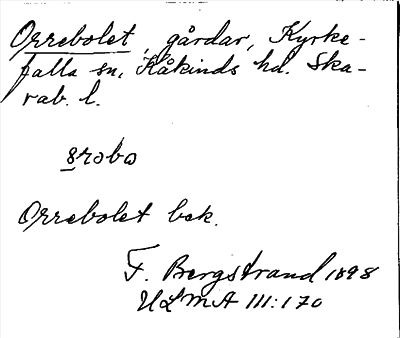 Orrebolet, gårdar, Kyrke-
falla sn, Kåkinds hd. Ska-
rab. l.
Orrebolet bek.
F. Bergstrand 1898
ULMA III:170